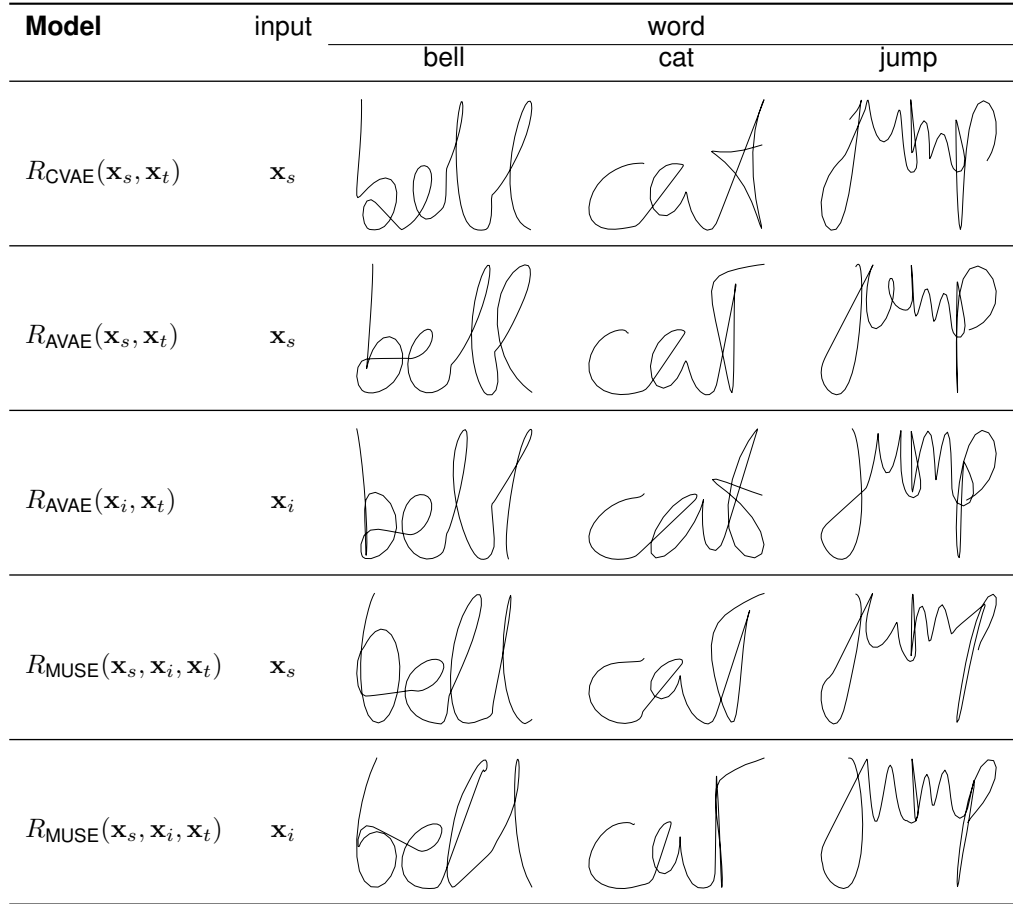 Model input word
bell cat jump
R_CVAE(x_s, x_t) x_s bell cat jump
R_AVAE(x_s, x_t) x_s bell cat jump
R_AVAE(x_i, x_t) x_i bell cat jump
R_MUSE(x_s, x_i, x_t) x_s bell cat jump
R_MUSE(x_s, x_i, x_t) x_i bell cat jump